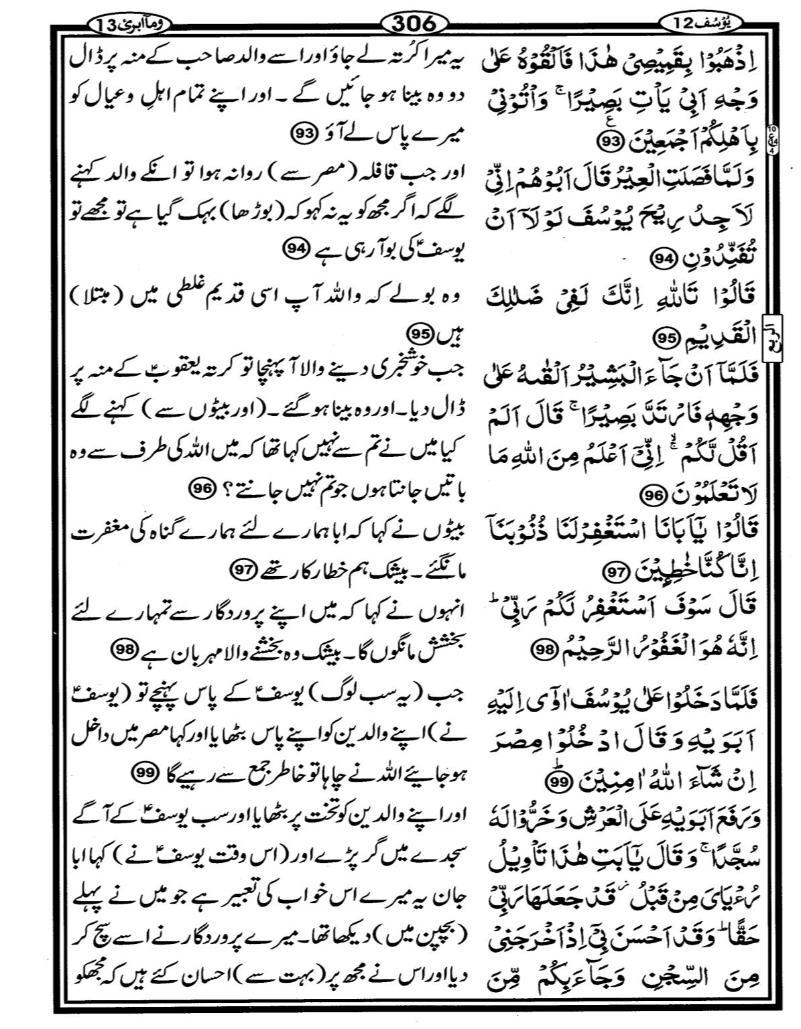 یُوْسُف 12
306
وماابرئ 13
اِذْهَبُوْا بِقَمِیْصِیْ هٰذَا فَاَلْقُوْهُ عَلٰی
وَجْهِ اَبِیْ یَاْتِ بَصِیْرًا ۚ وَاْتُوْنِیْ
بِاَهْلِکُمْ اَجْمَعِیْنَ ﴿93﴾ ع
وَلَمَّا فَصَلَتِ الْعِیْرُ قَالَ اَبُوْهُمْ اِنِّیْ
لَاَجِدُ رِیْحَ یُوْسُفَ لَوْلَاۤ اَنْ
تُفَنِّدُوْنِ ﴿94﴾
قَالُوْا تَاللّٰهِ اِنَّکَ لَفِیْ ضَلٰلِکَ
الْقَدِیْمِ ﴿95﴾
فَلَمَّاۤ اَنْ جَآءَ الْبَشِیْرُ اَلْقٰىهُ عَلٰی
وَجْهِهٖ فَارْتَدَّ بَصِیْرًا ۚ قَالَ اَلَمْ
اَقُلْ لَّکُمْ ۙ اِنِّیْۤ اَعْلَمُ مِنَ اللّٰهِ مَا
لَا تَعْلَمُوْنَ ﴿96﴾
قَالُوْا یٰۤاَبَانَا اسْتَغْفِرْ لَنَا ذُنُوْبَنَاۤ
اِنَّا کُنَّا خٰطِـِٕیْنَ ﴿97﴾
قَالَ سَوْفَ اَسْتَغْفِرُ لَکُمْ رَبِّیْ ؕ
اِنَّهٗ هُوَ الْغَفُوْرُ الرَّحِیْمُ ﴿98﴾
فَلَمَّا دَخَلُوْا عَلٰی یُوْسُفَ اٰوٰۤی اِلَیْهِ
اَبَوَیْهِ وَ قَالَ ادْخُلُوْا مِصْرَ
اِنْ شَآءَ اللّٰهُ اٰمِنِیْنَ ؕ ﴿99﴾
وَ رَفَعَ اَبَوَیْهِ عَلَی الْعَرْشِ وَ خَرُّوْا لَهٗ
سُجَّدًا ۚ وَ قَالَ یٰۤاَبَتِ هٰذَا تَاْوِیْلُ
رُءْیَایَ مِنْ قَبْلُ ؗ قَدْ جَعَلَهَا رَبِّیْ
حَقًّا ؕ وَ قَدْ اَحْسَنَ بِیْۤ اِذْ اَخْرَجَنِیْ
مِنَ السِّجْنِ وَ جَآءَ بِکُمْ مِّنَ
الربع
یہ میرا کُرتہ لے جاؤ اور اسے والد صاحب کے منہ پر ڈال
دو وہ بینا ہو جائیں گے ۔ اور اپنے تمام اہلِ وعیال کو
میرے پاس لے آؤ ﴿93﴾
اور جب قافلہ (مصر سے) روانہ ہوا تو انکے والد کہنے
لگے کہ اگر مجھ کو یہ نہ کہو کہ (بوڑھا) بہک گیا ہے تو مجھے تو
یوسفؑ کی بو آ رہی ہے ﴿94﴾
وہ بولے کہ واللہ آپ اسی قدیم غلطی میں (مبتلا)
ہیں ﴿95﴾
جب خوشخبری دینے والا آ پہنچا تو کرتہ یعقوبؑ کے منہ پر
ڈال دیا۔ اور وہ بینا ہو گئے ۔ (اور بیٹوں سے) کہنے لگے
کیا میں نے تم سے نہیں کہا تھا کہ میں اللہ کی طرف سے وہ
باتیں جانتا ہوں جو تم نہیں جانتے؟ ﴿96﴾
بیٹوں نے کہا کہ ابا ہمارے لئے ہمارے گناہ کی مغفرت
مانگئے۔ بیشک ہم خطا کار تھے ﴿97﴾
انہوں نے کہا کہ میں اپنے پروردگار سے تمہارے لئے
بخشش مانگوں گا۔ بیشک وہ بخشنے والا مہربان ہے ﴿98﴾
جب (یہ سب لوگ) یوسفؑ کے پاس پہنچے تو (یوسفؑ
نے) اپنے والدین کو اپنے پاس بٹھایا اور کہا مصر میں داخل
ہو جایئے اللہ نے چاہا تو خاطر جمع سے رہیے گا ﴿99﴾
اور اپنے والدین کو تخت پر بٹھایا اور سب یوسفؑ کے آگے
سجدے میں گر پڑے اور (اس وقت یوسفؑ نے) کہا ابا
جان یہ میرے اس خواب کی تعبیر ہے جو میں نے پہلے
(بچپن میں) دیکھا تھا۔ میرے پروردگار نے اسے سچ کر
دیا اور اس نے مجھ پر (بہت سے) احسان کئے ہیں کہ مجھکو